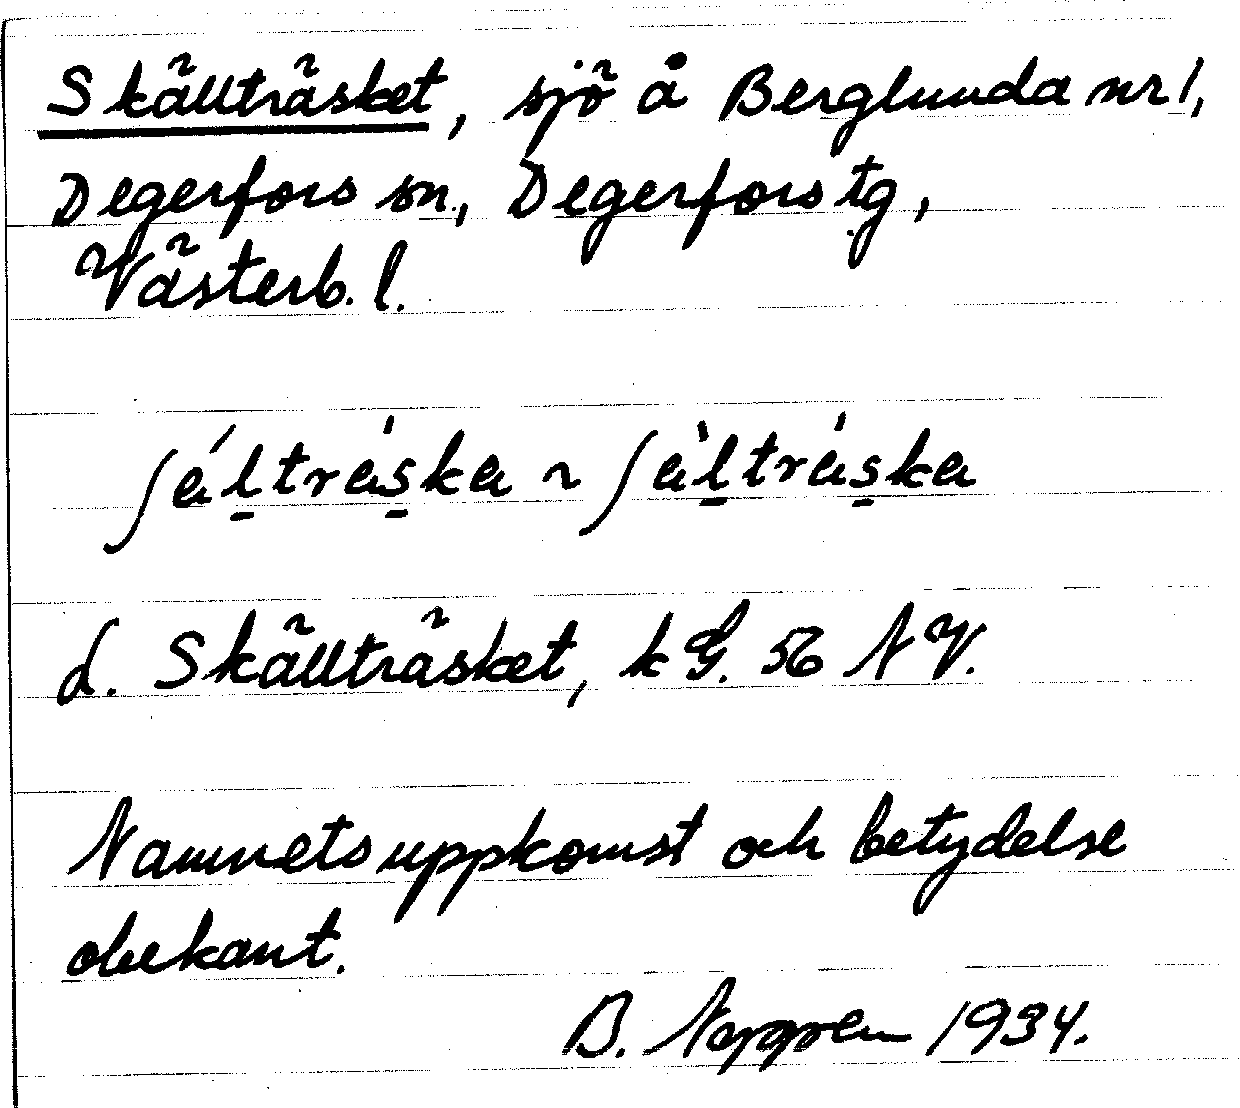 Skällträsket, sjö å Berglunda nr 1,
Degerfors sn., Degerfors tg,
Västerb. l.
ʃáḻtràs̱ka ~ ʃàḻtràs̱ka
d. Skällträsket, k G. 56 NV.
Namnets uppkomst och betydelse
obekant.
B. 1934.